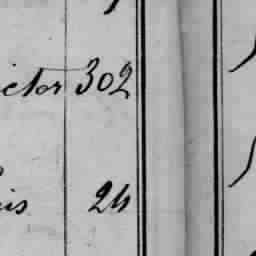 ictor 302
is 24